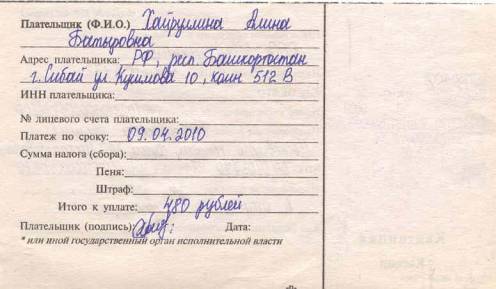 Плательщик (Ф.И.О.) Хайруллина Алина
Батыровна
Адрес плательщика: РФ, респ. Башкортостан
г. Сибай ул Куйлова 10, 512 В
ИНН плательщика:
№ лицевого счета плательщика:
Платеж по сроку: 09.04.2010
Сумма налога (сбора):
Пеня:
Штраф:
Итого к уплате: 480 рублей
Плательщик (подпись): Дата:
* или иной государственный орган исполнительной власти